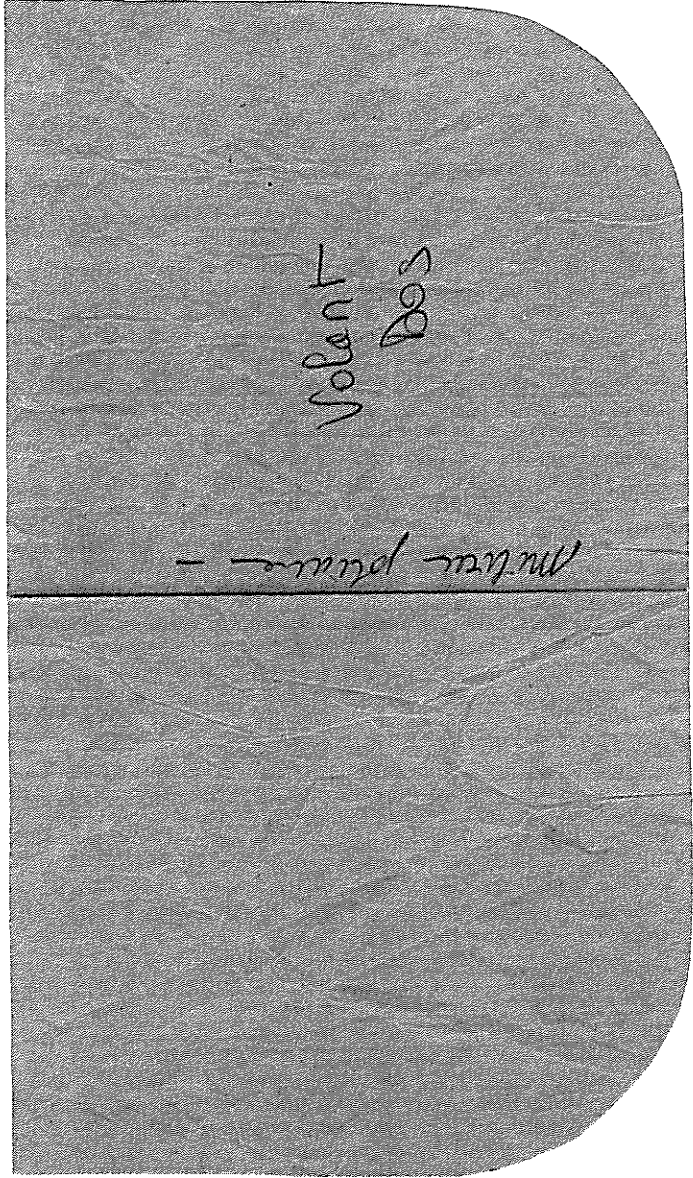 Volant
Dos
milieu pliure -